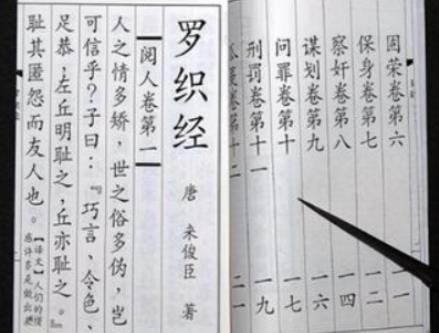 固荣卷第六 一一
保身卷第七 一二
察奸卷第八 一四
谋划卷第九 一六
问罪卷第十 一七
刑罚卷第十一 一九
瓜蔓卷第十二
罗织经
唐 来俊臣 著
阅人卷第一
人之情多矫，世之俗多伪，岂
可信乎？子曰：『巧言、令色、
足恭，左丘明耻之，丘亦耻之。』
耻其匿怨而友人也。
【译文】人们的情
感许多是做出来